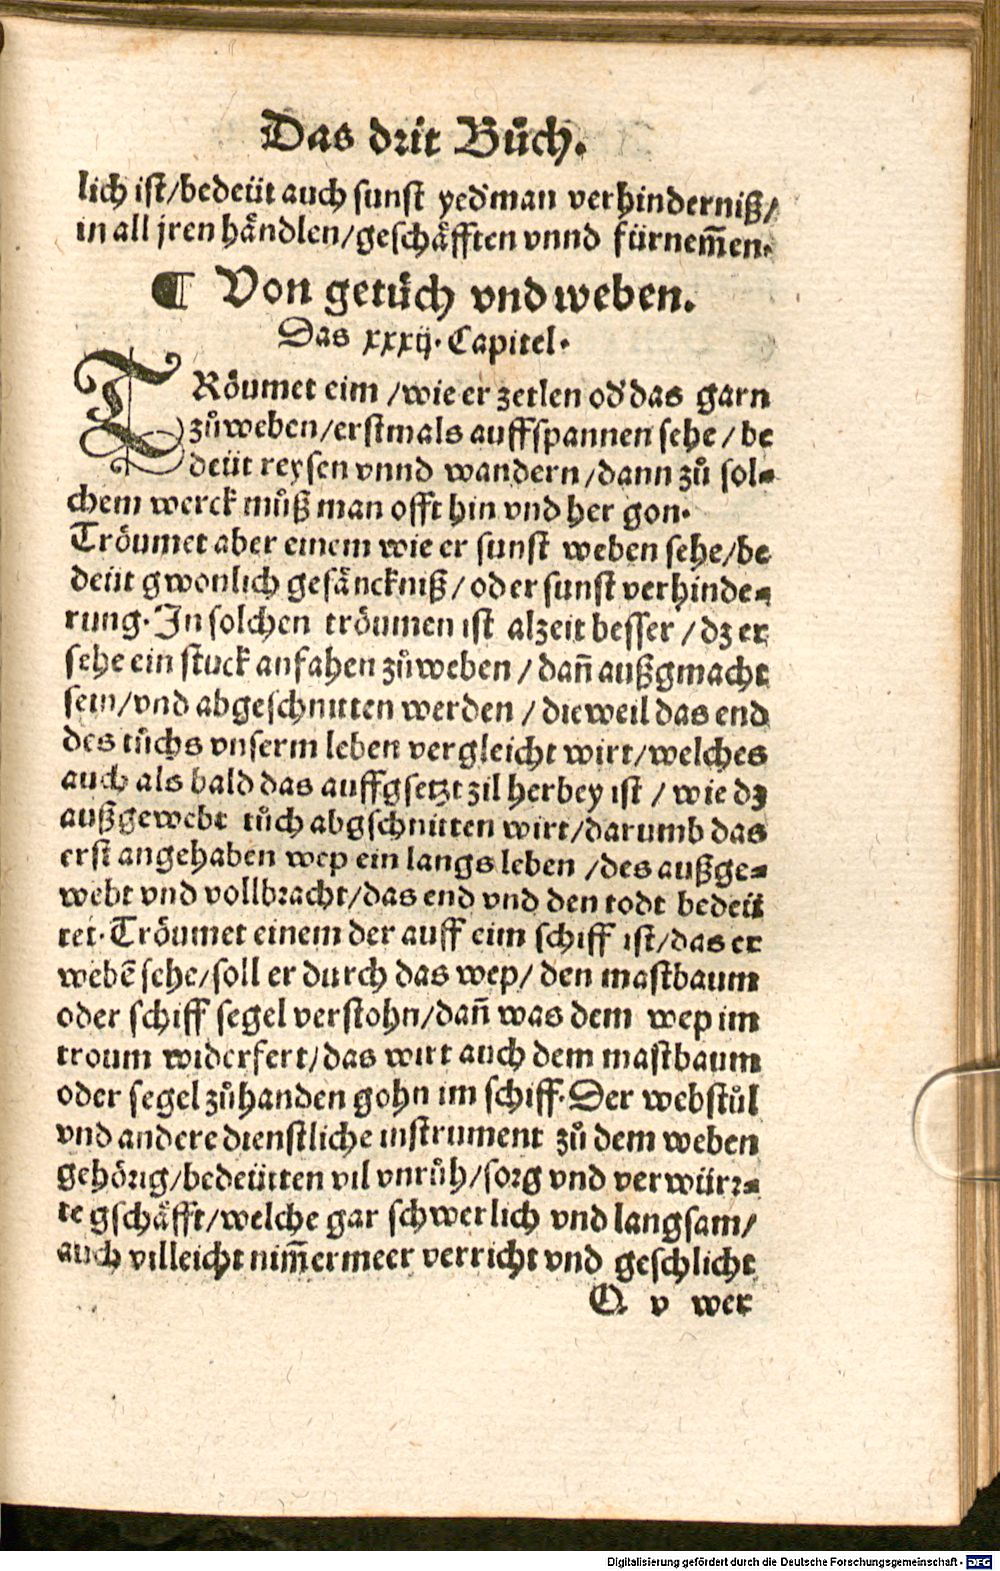 Das drit Bůch.
lich ist/bedeüt auch sunst yed'man verhinderniß/
in all jren händlen/geschäfften vnnd fürnem̃en.
¶ Von getůch vnd weben.
Das xxxij. Capitel.
TRöumet eim /wie er zetlen od' das garn
zůweben/erstmals auffspannen sehe / be
deüt reysen vnnd wandern /dann zů sol⸗
chem werck můß man offt hin vnd her gon.
Tröumet aber einem wie er sunst weben sehe/be
deüt gwonlich gefänckniß / oder sunst verhinde⸗
rung. In solchen tröumen ist alzeit besser / dz er
sehe ein stuck anfahen zůweben / dañ außgmacht
sein/vnd abgeschnitten werden / dieweil das end
des tůchs vnserm leben vergleicht wirt/welches
auch als bald das auffgsetzt zil herbey ist / wie dz
außgewebt tůch abgschnitten wirt/darumb das
erst angehaben wep ein langs leben /des außge⸗
webt vnd vollbracht/das end vnd den todt bedeü
tet. Tröumet einem der auff eim schiff ist/das er
webē sehe/soll er durch das wep/ den mastbaum
oder schiff segel verstohn/dañ was dem wep im
troum widerfert/das wirt auch dem mastbaum
oder segel zůhanden gohn im schiff. Der webstůl
vnd andere dienstliche instrument zů dem weben
gehörig/bedeütten vil vnrůh/sorg vnd verwürr⸗
te gschäfft/welche gar schwerlich vnd langsam/
auch villeicht nim̃ermeer verricht vnd geschlicht
Q v wer
Digitalisierung gefördert durch die Deutsche Forschungsgemeinschaft - DFG